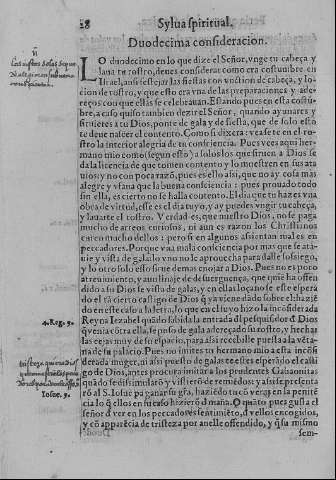 28 Sylua spiritual.
Duodecima consideracion.
LO duodecimo en lo que dize el Señor, vnge tu cabeça y
laua tu rostro, deues considerar como era costumbre en
Israel, ansi festejar las fiestas con vnction de cabeça, y lo-
cion de rostro, y que esto era vna de las preparaciones y ade-
reços con que ellas se celebrauan. Estando pues en esta costũ-
bre, a caso quiso tambien dezir el Señor, quando ayunares y
siruieres a tu Dios, ponte de gala y de fiesta, que de solo esto
te deue nascer el contento. Como si dixera: vease te en el ro-
stro la interior alegria de tu consciencia. Pues vees aqui her-
mano mio como (segun esto) a solos los que siruen a Dios se
da la licencia de que tomen contento y lo muestren en sus ata
uios: y no con poca razõ, pues es ello asi, que no ay cosa mas
alegre y vfana que la buena consciencia: pues prouado todo
sin ella, es cierto no se halla contento. El dia que tu hazes vna
obra de virtud, esse es el dia tuyo, y ay puedes vngir tu cabeça,
y lauarte el rostro. Verdad es, que nuestro Dios, no se paga
mucho de arreos curiosos, ni aun es razon los Christianos
curen mucho dellos: pero si en algunos asientan mal es en
peccadores. Porque vna mala consciencia por mas que se ata-
uie y vista de gala lo vno no le aprouecha para dalle sossiego,
y lo otro solo esso sirue de mas enojar a Dios. Pues no es poco
atreuimiento, y aun linaje de desuerguença, que quiẽ ha offen
dido a su Dios se vista de galas, y en ellas loçano se este espera
do el tã cierto castigo de Dios q̃ va viene
do en este caso a la letra, lo que
Reyna Iezabel quando sabida la entrada del pesquisidor d̃ Dios
q̃ venia cõtra ella, se puso de gala adereçado su rostro, y hechas
las cejas muy de su espacio, para assi recebille puesta a la vẽta-
na de su palacio. Pues no imites tu hermano mio a esta incõsi
derada muger, ni assi puesto de galas te estes esperãdo el casti-
go de Dios, antes procura imitar a los prudentes Gabaonitas
quãdo se dissimularõ y vistierõ de remiẽdos: y assi se presenta
rõ al S. Iosue pa ganar su gra, haziẽdo tu cõ veras en la penitẽ
cia lo q̃ ellos en su caso hizierõ d̃ maña. O quãto pues gusta el
señor d̃ ver en los peccadores sentimiẽto, d̃ vellos encogidos,
y cõ apparẽcia de tristeza por auelle offendido, y q̃ su mismo
sem-
vi
4. Reg. 9.
Iosue. 9.